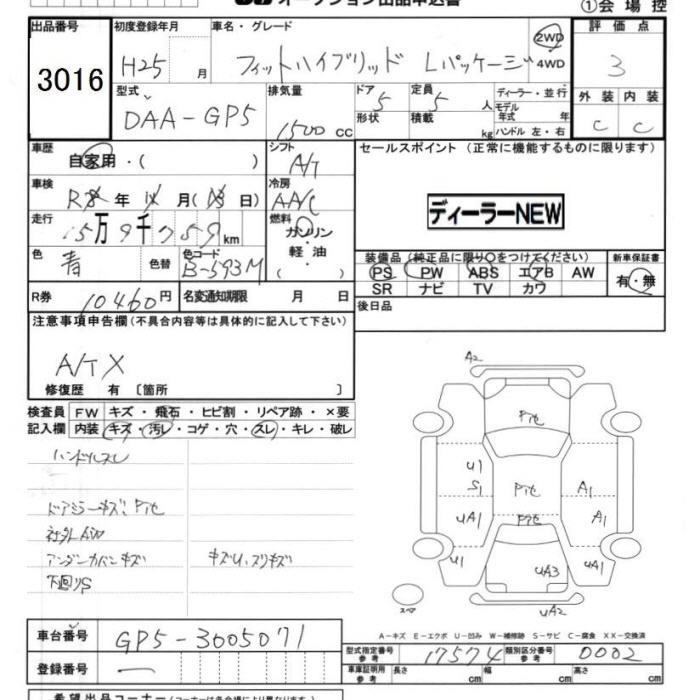 オークション出品申込書
①会場控
出品番号 3016
初度登録年月 H25 月
車名・グレード フィットハイブリッド Lパッケージ
2WD
4WD
評価点 3
型式 DAA-GP5
排気量 1500 cc
ドア 5
形状
定員 5 人
積載 kg
ディーラー・並行
モデル年式 年式
ハンドル 左・右
外装 内装
C C
車歴 自家用・( )
シフト A/T
セールスポイント (正常に機能するものに限ります)
車検 年 月( 日)
冷房 A/C
ディーラーNEW
走行 5万9千759km
燃料 ガソリン
軽・油
( )
色 青 色替
色コード B-593M
装備品 (純正品に限り○をつけてください)
新車保証書
PS PW ABS エアB AW
有・無
SR ナビ TV カワ
R券 10460円
名変通知期限 月 日
後日品
注意事項申告欄 (不具合内容等は具体的に記入して下さい)
A/T X
修復歴 有 〔箇所 〕
検査員 FW キズ・飛石・ヒビ割・リペア跡・×要
記入欄 内装 キズ・汚レ・コゲ・穴・スレ・キレ・破レ
ハンドルスレ
ドアミラーキズ
社外AW
アンダーカバーキズ
キズU、スリキズ
下回りS
A2
U1
S1
UA1
U1
A1
A1
UA1
UA3
UA2
スペア
A-キズ E-エクボ U-凹み W-補修跡 S-サビ C-腐食 XX-交換済
車台番号 GP5-3005071
型式指定番号 参考 17574
類別区分番号 参考 0002
登録番号 —
車庫証明用 参考 長さ cm 幅 cm 高さ cm
希望出品コーナー